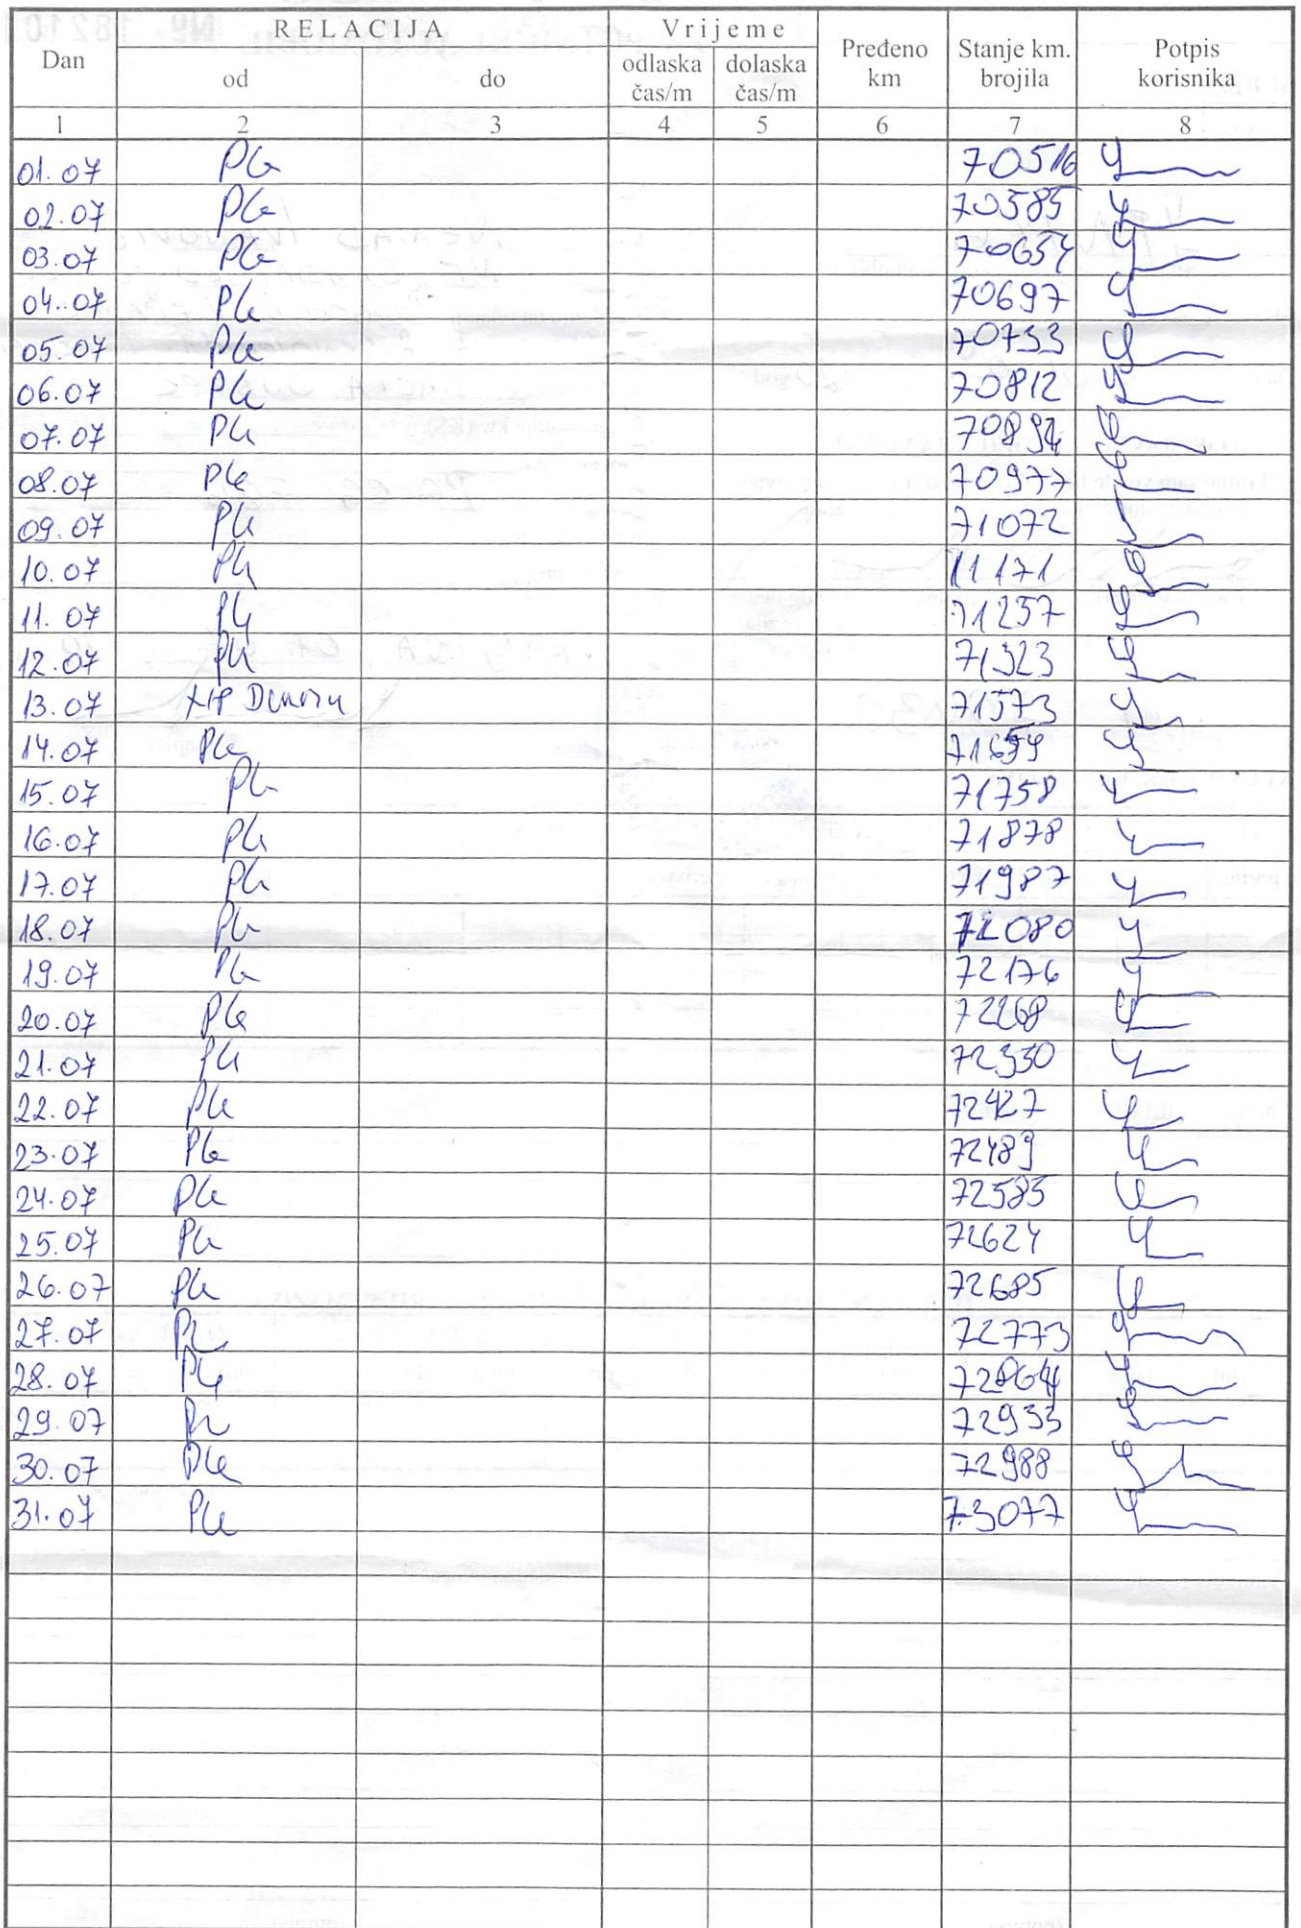 RELACIJA Vrijeme
Dan od do odlaska čas/m dolaska čas/m Pređeno km Stanje km. brojila Potpis korisnika
1 2 3 4 5 6 7 8
01.07 PG 70516
02.07 PG 70585
03.07 PG 70654
04.07 PG 70697
05.07 PG 70753
06.07 PG 70812
07.07 PG 70894
08.07 PG 70977
09.07 PG 71072
10.07 PG 71171
11.07 PG 71257
12.07 PG 71323
13.07 71573
14.07 PG 71659
15.07 PG 71758
16.07 PG 71878
17.07 PG 71987
18.07 PG 72080
19.07 PG 72176
20.07 PG 72268
21.07 PG 72330
22.07 PG 72427
23.07 PG 72489
24.07 PG 72585
25.07 PG 72624
26.07 PG 72685
27.07 PG 72773
28.07 PG 72864
29.07 PG 72933
30.07 PG 72988
31.07 PG 73077